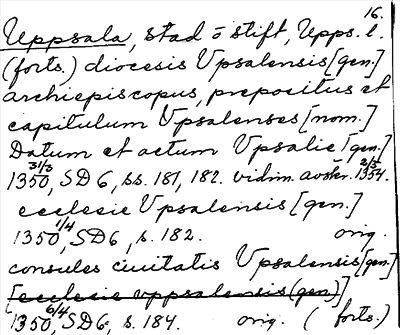 16.
Uppsala, stad o stift, Upps. l.
(forts.) diocesis Vpsalensis [gen.]
archiepiscopus, prepositus et
capitulum Vpsalenses [nom.]
Datum et actum Vpsalie [gen.]
31/3 1350, SD 6, ss. 181, 182. vidim. avskr. 2/5 1354.
ecclesie Vpsalensis [gen.]
1/4 1350, SD 6, s. 182. orig.
consules ciuitatis Vpsalensis [gen.]
[ecclesie vppsalensis (gen.)]
6/4 1350, SD 6, s. 184. orig. (forts.)